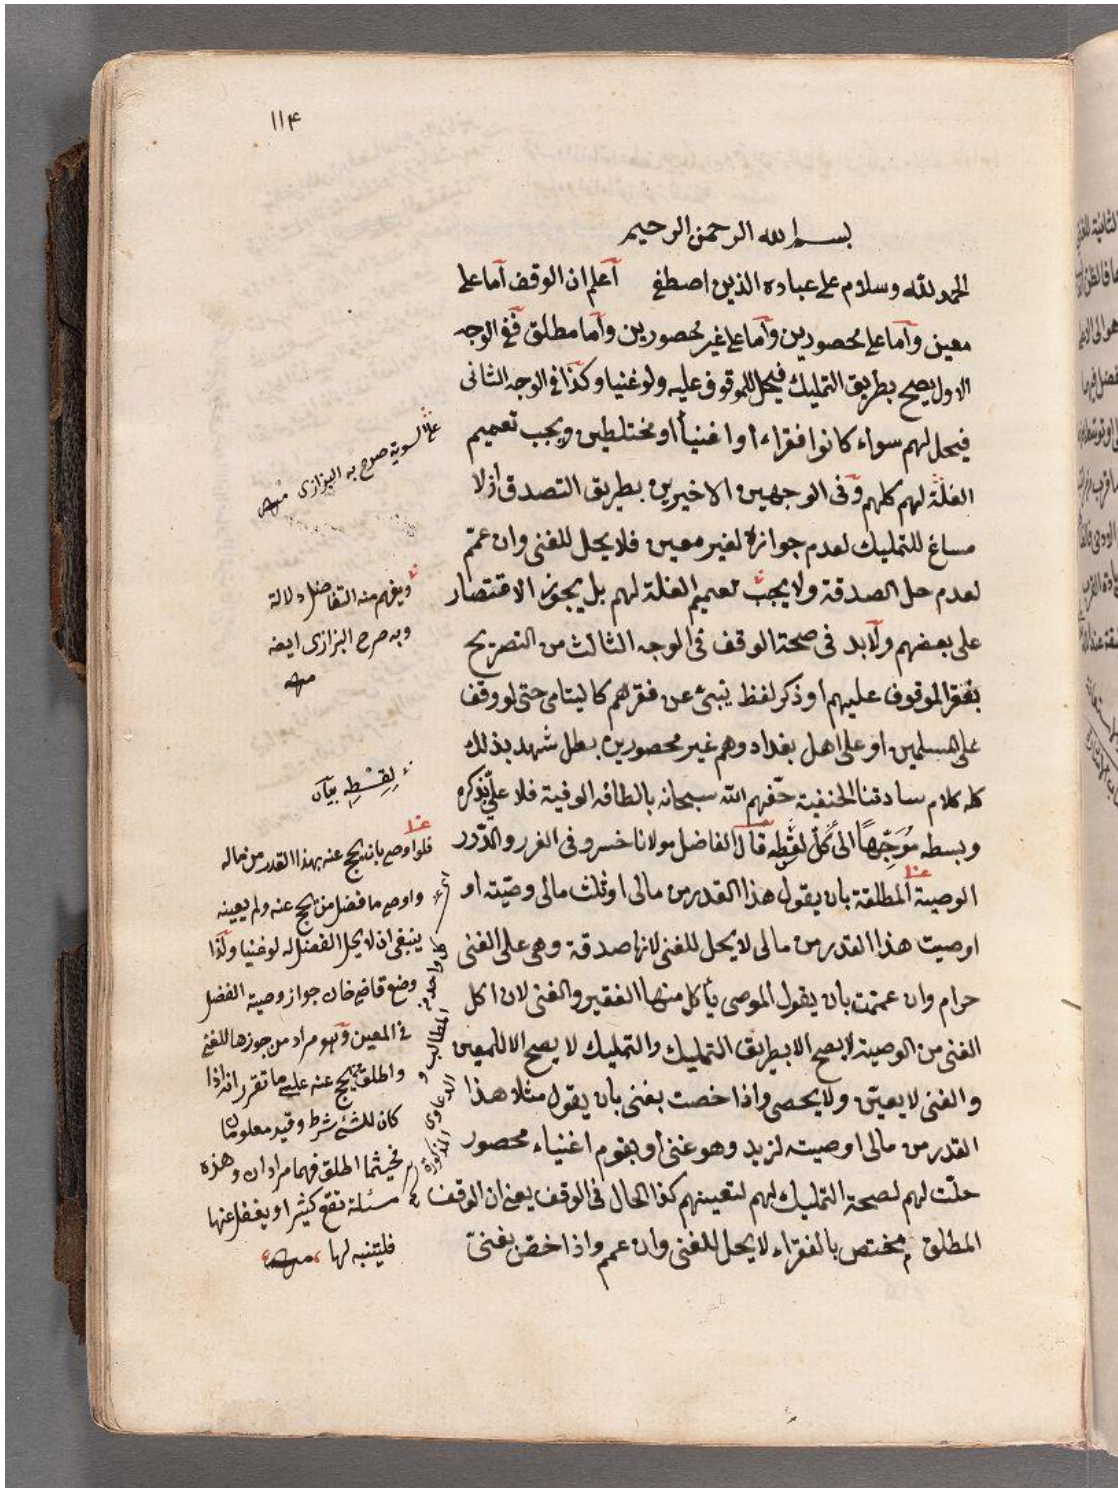 ١١٤
بسم الله الرحمن الرحيم
الحمد لله وسلام على عباده الذين اصطفى اعلم ان الوقف اما على
معين واما على محصورين واما على غير محصورين واما مطلق ففى الوجه
الاول يصح بطريق التمليك فيحل للموقوف عليه ولو غنيا وكذا فى الوجه الثانى
فيحل لهم سواء كانوا فقراء او اغنياء او مختلطين ويجب تعميم
الغلة لهم كلهم وفى الوجهين الاخيرين بطريق التصدق اذ لا
مساغ للتمليك لعدم جوازه لغير معين فلا يحل للغنى وان عمم
لعدم حل الصدقة ولا يجب تعميم الغلة لهم بل يجوز الاقتصار
على بعضهم ولا بد فى صحة الوقف فى الوجه الثالث من التصريح
بفقر الموقوف عليهم او ذكر لفظ ينبئ عن فقرهم كاليتامى حتى لو وقف
على المسلمين او على اهل بغداد وهم غير محصورين بطل شهد بذلك
كله كلام سادتنا الحنفية حفهم الله سبحانه بالطافه الوفية فلا علي بذكره
وبسطه موجها الى كل لقطه قال الفاضل مولانا خسرو فى الغرر والدرر
الوصية المطلقة بان يقول هذا القدر من مالى او ثلث مالى وصية او
اوصيت هذا القدر من مالى لا يحل للغنى لانها صدقة وهى على الغنى
حرام وان عممت بان يقول الموصى يأكل منها الفقير والغنى لان اكل
الغنى من الوصية لا يصح الا بطريق التمليك والتمليك لا يصح الا للمعين
والغنى لا يعين ولا يحصى واذا خصت بغنى بان يقول مثلا هذا
القدر من مالى اوصيته لزيد وهو غنى او بقوم اغنياء محصور
حلت لهم لصحة التمليك لهم لتعينهم كذا الحال فى الوقف يعنى ان الوقف
المطلق مختص بالفقراء لا يحل للغنى وان عمم واذا خص بغنى
على السوية صرح به البزازى منه
ويفهم منه التفاضل دلالة
وبه صرح البزازى ايضا
منه
لقطه بيان
اى كل واحد من المطالب والدعاوى المذكورة
فلو اوصى بان يحج عنه بهذا القدر من ماله
واوصى ما فضل من يحج عنه ولم يعينه
ينبغى ان لا يحل الفضل له لو غنيا ولذا
وضع قاضى خان جواز وصية الفضل
فى المعين وهو مراد من جوزها للغنى
واطلق يحج عنه على ما تقرر انه اذا
كان للشئ شرط وقيد معلومان
فحيثما اطلق فهما مرادان وهذه
مسئلة تقع كثيرا ويغفل عنها
فليتنبه لها منه